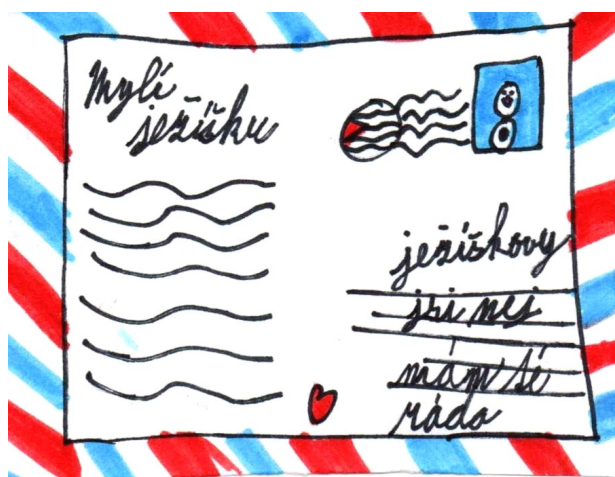 Mylí
ježíšku
ježíškovy
jsi nej
mám tě
ráda